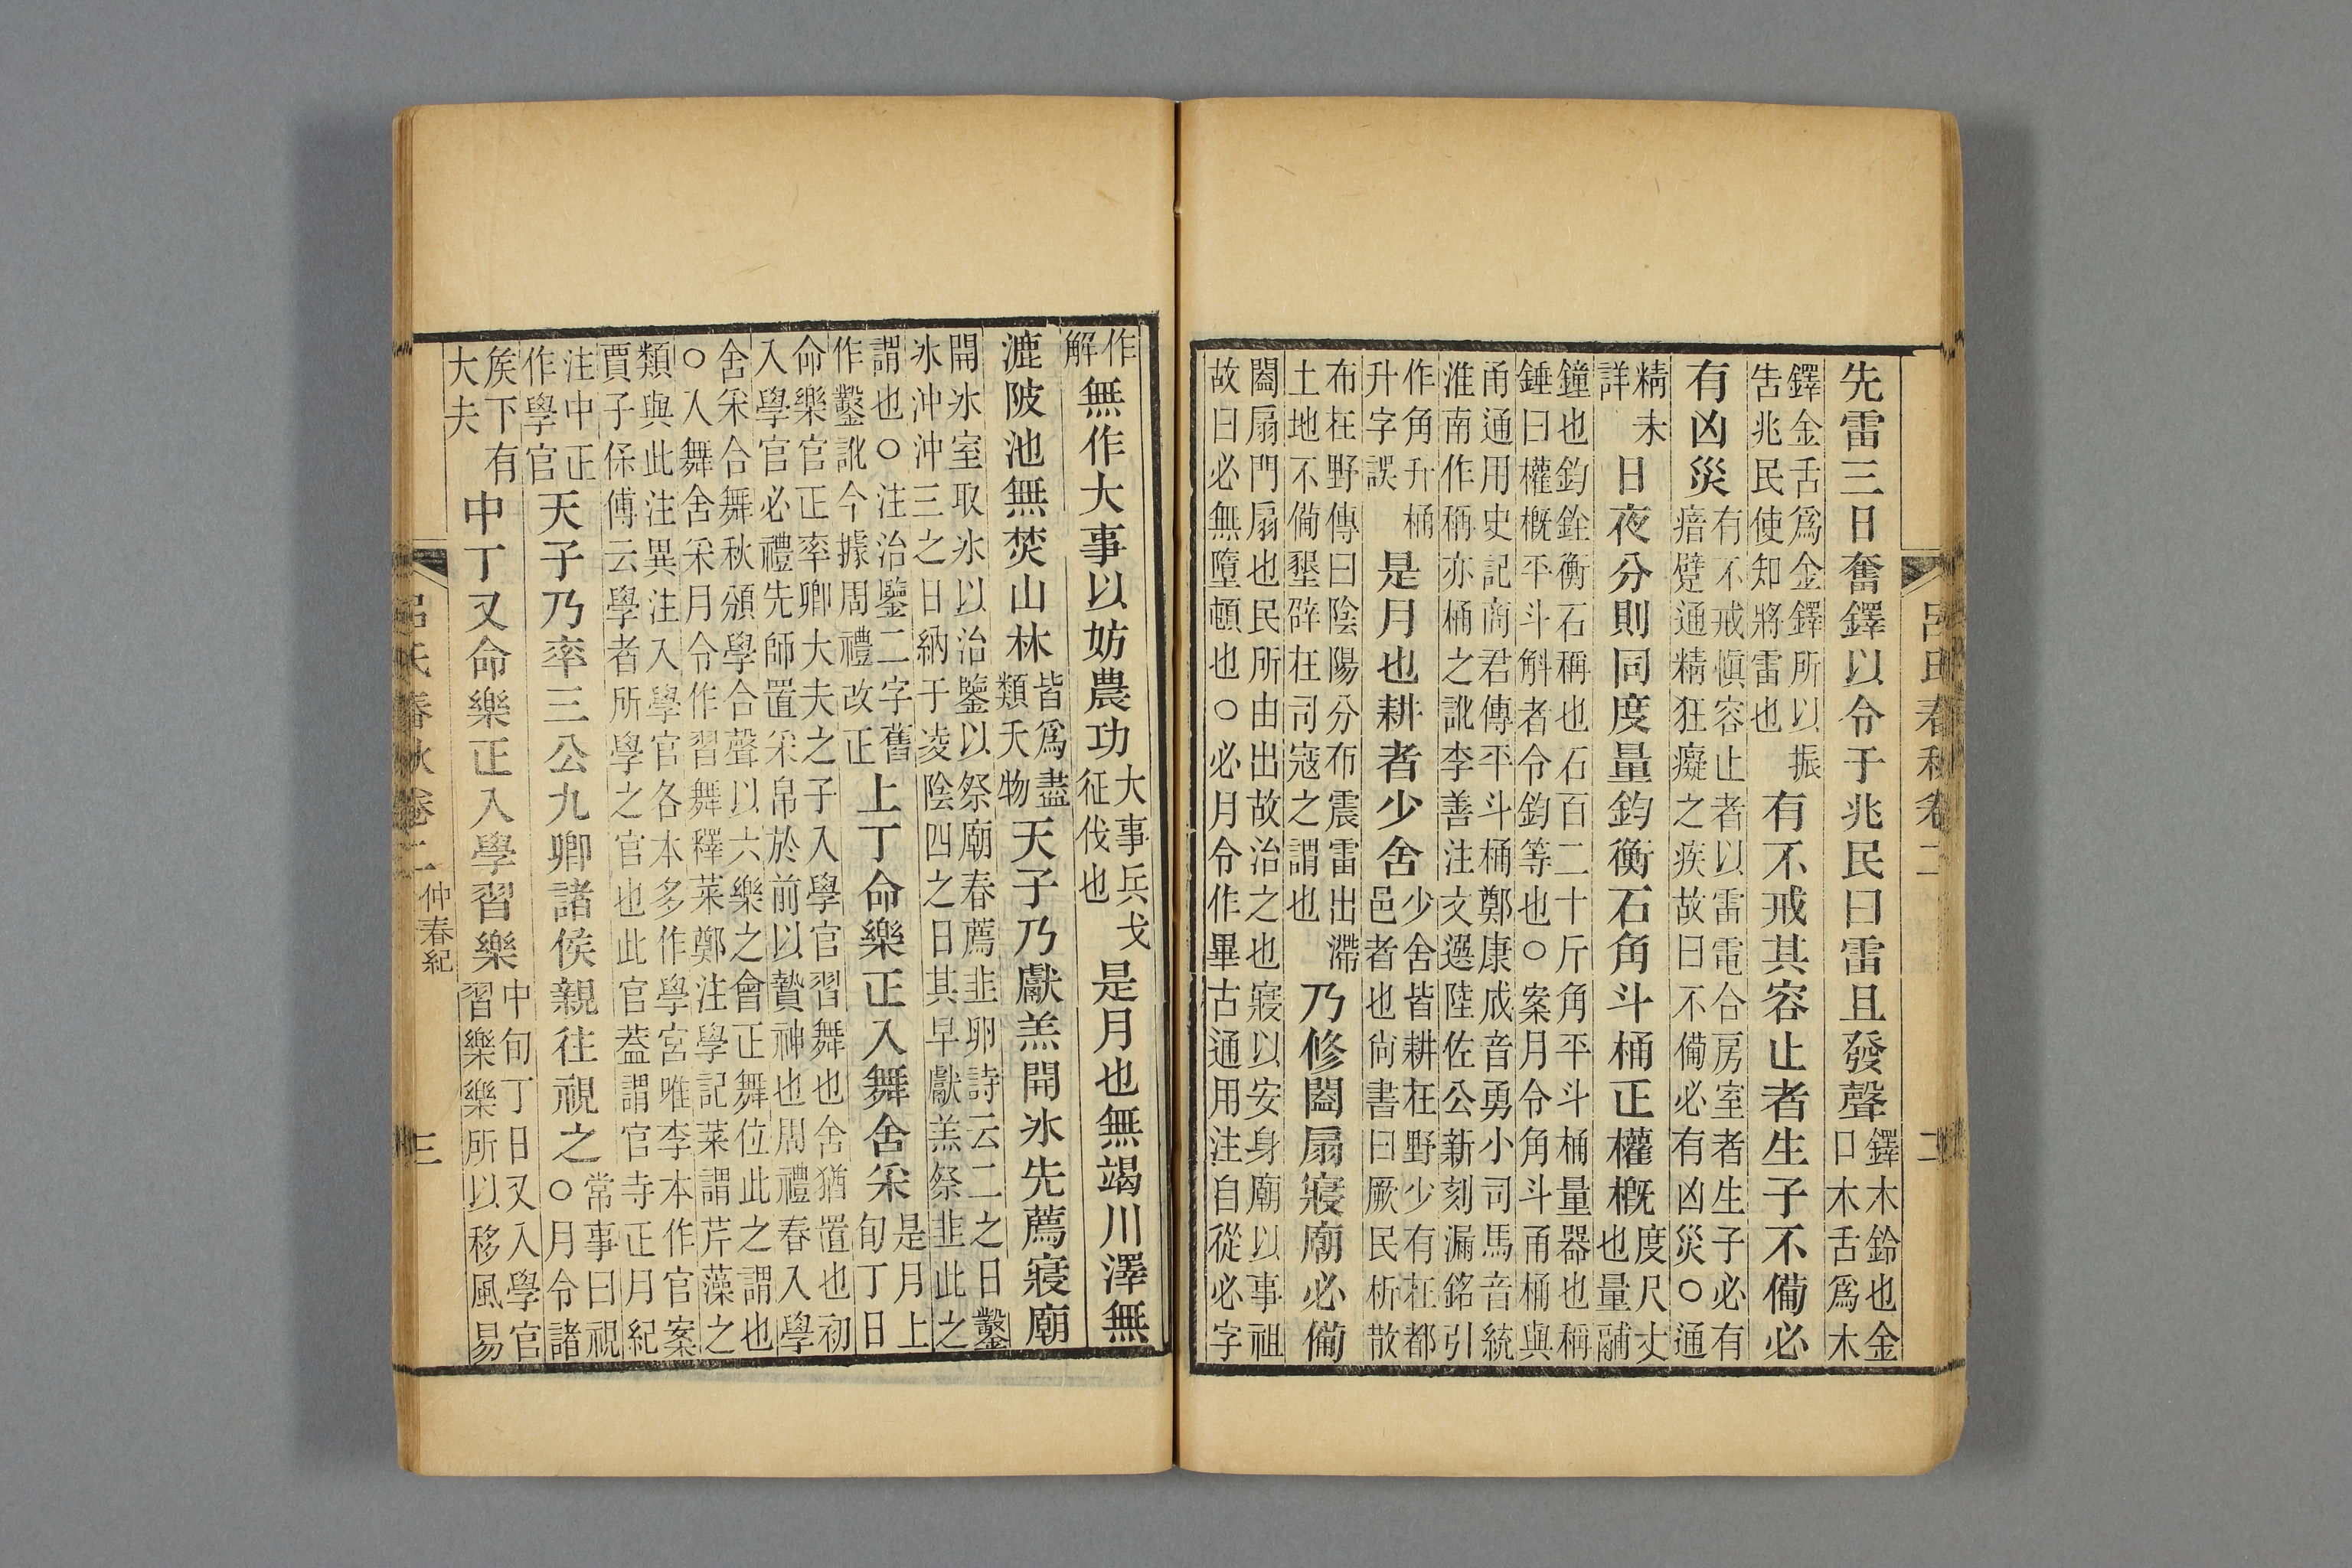 呂氏春秋卷二 二
先雷三日奮鐸以令于兆民曰雷且發聲鐸木鈴也金口木舌爲木
鐸金舌爲金鐸所以振告兆民使知將雷也有不戒其容止者生子不備必
有凶災有不戒愼容止者以雷電合房室者生子必有瘖躄通精狂癡之疾故曰不備必有凶災○通
精未詳日夜分則同度量鈞衡石角斗桶正權概度尺丈也量鬴
鐘也鈞銓衡石稱也石百二十斤角平斗桶量器也稱錘曰權概平斗斛者令鈞等也○案月令角斗甬桶與
甬通用史記商君傳平斗桶鄭康成音勇小司馬音統淮南作稱亦桶之訛李善注文選陸佐公新刻漏銘引
作角升桶升字誤是月也耕者少舍少舍皆耕在野少有在都邑者也尙書曰厥民析散
布在野傳曰陰陽分布震雷出滯土地不備墾辟在司寇之謂也乃修闔扇寢廟必備
闔扇門扇也民所由出故治之也寢以安身廟以事祖故曰必無墮頓也○必月令作畢古通用注自從必字
作解無作大事以妨農功大事兵戈征伐也是月也無竭川澤無
漉陂池無焚山林皆爲盡類夭物天子乃獻羔開冰先薦寢廟
開冰室取冰以治鑒以祭廟春薦韭卵詩云二之日鑿冰沖沖三之日納于凌陰四之日其早獻羔祭韭此之
謂也○注治鑒二字舊作鑿訛今據周禮改正上丁命樂正入舞舍采是月上旬丁日
命樂官正率卿大夫之子入學官習舞也舍猶置也初入學官必禮先師置采帛於前以贄神也周禮春入學
舍采合舞秋頒學合聲以六樂之會正舞位此之謂也○入舞舍采月令作習舞釋菜鄭注學記菜謂芹藻之
類與此注異注入學官各本多作學宮唯李本作官案賈子保傅云學者所學之官也此官蓋謂官寺正月紀
注中正作學官天子乃率三公九卿諸侯親往視之常事曰視○月令諸
矦下有大夫中丁又命樂正入學習樂中旬丁日又入學官習樂樂所以移風易
呂氏春秋卷二 仲春紀 三